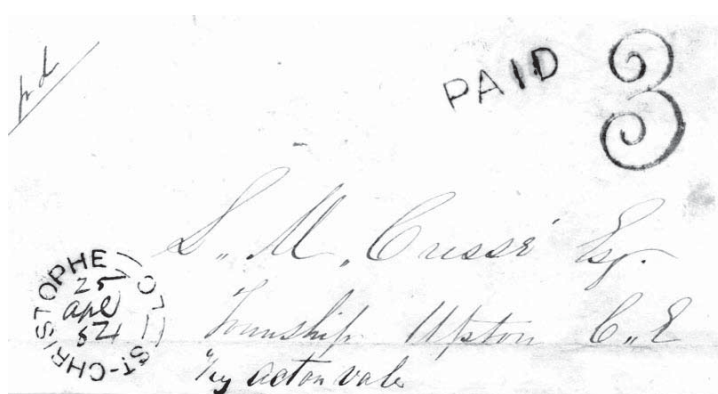 pd
PAID 3
S. M. Cressé Esq.
Township Upton C. E
by acton vale
ST-CHRISTOPHE
25
apl